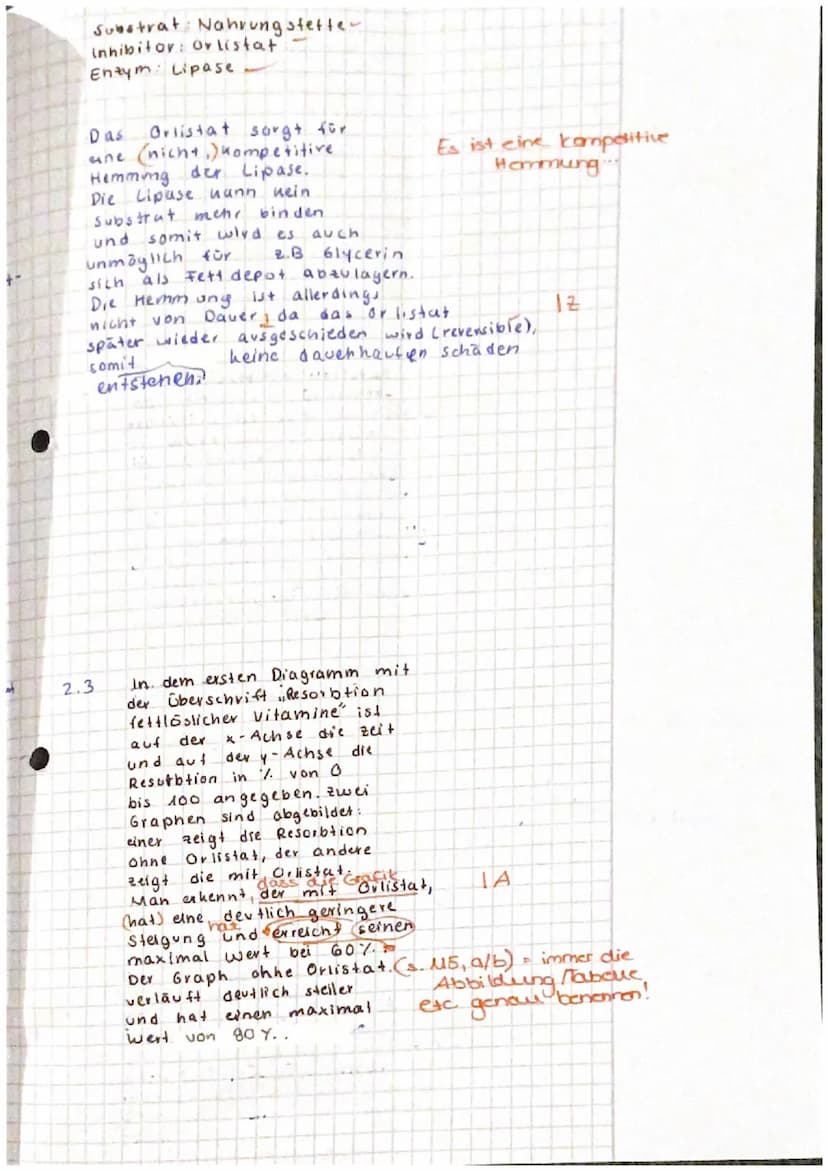 Substrat: Nahrungsfette
Inhibitor: Orlistat
Enzym: Lipase
Das Orlistat sorgt für
eine (nicht,) kompetitive
Hemmung der Lipase.
Es ist eine kompetitive
Hemmung...
Die Lipase kann kein
Substrat mehr binden
und somit wird es auch
unmöglich für z.B Glycerin
sich als Fettdepot abzulagern.
Die Hemmung ist allerdings
nicht von Dauer, da das Orlistat
1Z
später wieder ausgeschieden wird (reversible),
somit keine dauerhaften schäden
entstehen.
2.3 In dem ersten Diagramm mit
der Überschrift „Resorbtion
fettlöslicher Vitamine" ist
auf der x-Achse die zeit
und auf der y-Achse die
Resorbtion in % von 0
bis 100 angegeben. Zwei
Graphen sind abgebildet:
einer zeigt die Resorbtion
ohne Orlistat, der andere
zeigt die mit Orlistat.
dass die Grafik
Man erkennt, der mit Orlistat,
1A
(hat) eine deutlich geringere
hat
Steigung und erreicht seinen
maximal Wert bei 60%.
Der Graph ohne Orlistat
(s. M5, a/b) = immer die
verläuft deutlich steiler
Abbildung/Tabelle
und hat einen maximal
etc genau benennen!
Wert von 80%.